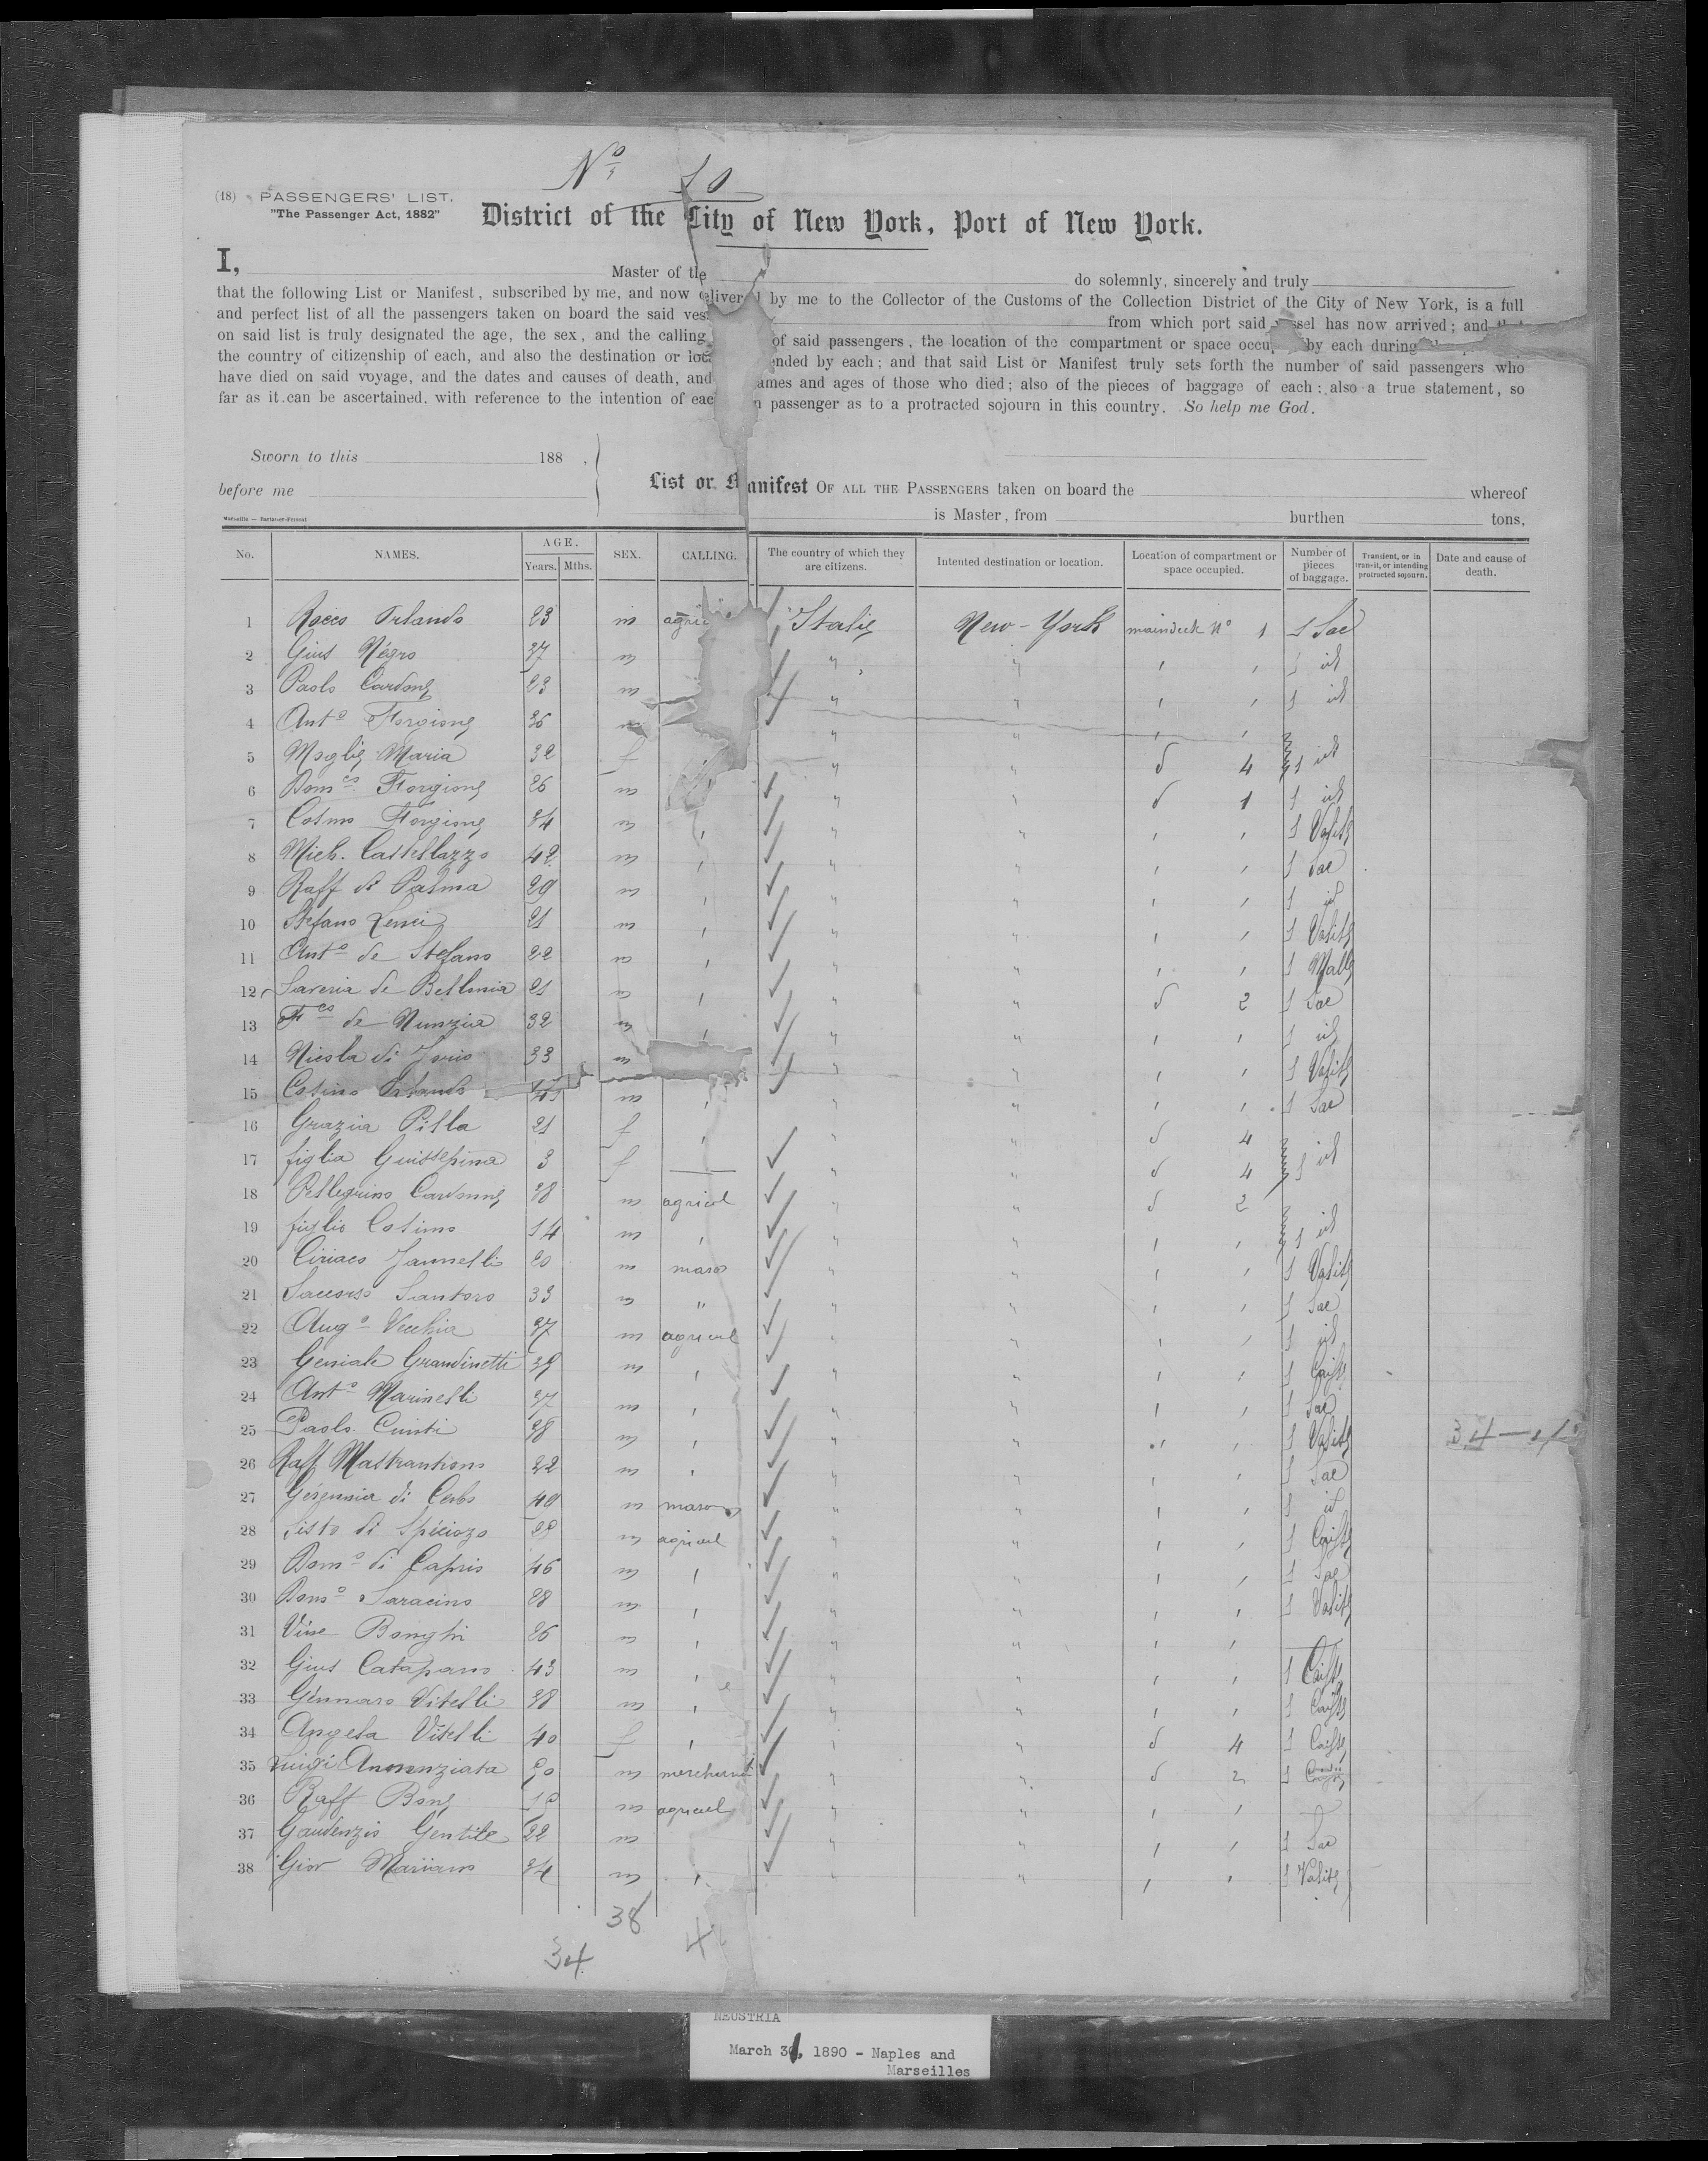 Nº 10
(18) PASSENGERS' LIST.
"The Passenger Act, 1882"
District of the City of New York, Port of New York.
I, Master of the do solemnly, sincerely and truly
that the following List or Manifest, subscribed by me, and now delivered by me to the Collector of the Customs of the Collection District of the City of New York, is a full
and perfect list of all the passengers taken on board the said ves from which port said vessel has now arrived; and that
on said list is truly designated the age, the sex, and the calling of said passengers, the location of the compartment or space occup by each during
the country of citizenship of each, and also the destination or loc ended by each; and that said List or Manifest truly sets forth the number of said passengers who
have died on said voyage, and the dates and causes of death, and ames and ages of those who died; also of the pieces of baggage of each: also a true statement, so
far as it can be ascertained, with reference to the intention of eac passenger as to a protracted sojourn in this country. So help me God.
Sworn to this 188 ,
before me
List or Manifest OF ALL THE PASSENGERS taken on board the whereof
is Master, from burthen tons,
No. NAMES. AGE. Years. Mths. SEX. CALLING. The country of which they are citizens. Intented destination or location. Location of compartment or space occupied. Number of pieces of baggage. Transient, or in transit, or intending protracted sojourn. Date and cause of death.
1 Rocco Orlando 23 m agric Italie New-York maindeck Nº 1 1 Sac
2 Gius Négro 37 m " " 1 id
3 Paolo Cardone 23 m " " 1 id
4 Antº Forgione 36 m " "
5 Moglie Maria 32 f " " d 4 1 id
6 Domco Forgione 26 m " " d 1 1 id
7 Cosmo Forgione 24 m " " 1 Valise
8 Mich. Castellazzo 42 m " " 1 Sac
9 Raff di Palma 29 m " " 1 id
10 Stefano Lenci 21 m " " 1 Valise
11 Antº de Stefano 22 m " " 1 Malle
12 Saveria de Bellonia 21 m " " d 2 1 Sac
13 Fco de Nunzia 32 m " " 1 id
14 Nicola di Iorio 33 m " " 1 Valise
15 Cosimo Orlando m " " 1 Sac
16 Grazia Pilla 21 f " " d 4
17 figlia Guiseppina 3 f " " d 4 1 id
18 Pellegrino Cardone 38 m agricul " " d 2
19 figlio Cosimo 14 m " " 1 id
20 Ciriaco Jannelli 20 m maso " " 1 Valise
21 Santoro 33 m " " " 1 Sac
22 Augº Vecchia 37 m agricul " " 1 id
23 Geniale Grandinetti 39 m " " 1 Caisse
24 Antº Marinelli 37 m " " 1 Sac
25 Paolo Cinti 38 m " " 1 Valise
26 Raff Mastrantiono 22 m " " 1 Sac
27 di Cerbo 40 m mason " " 1 id
28 Sisto di 29 m agricul " " 1 Caisse
29 Domº di Caprio 46 m " " 1 Sac
30 Domº Saracino 28 m " " 1 Valise
31 Vinc Bonghi 26 m " "
32 Gius Catapano 43 m " " 1 Caisse
33 Génnaro Vitelli 38 m " " 1 Caisse
34 Angela Vitelli 40 f " " d 4 1 Caisse
35 Luigi Annunziata m merchand " " d 2 1
36 Raff Bone m agricul " "
37 Gaudenzio Gentile 22 m " " 1 Sac
38 Giov Mariano 34 m " " 1 Valise
38
34
NEUSTRIA
March 31, 1890 - Naples and
Marseilles